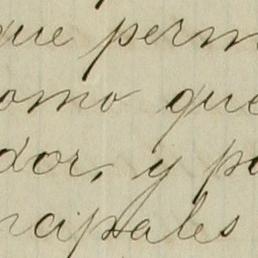 que perm
omo que
dor, y po
ncipales